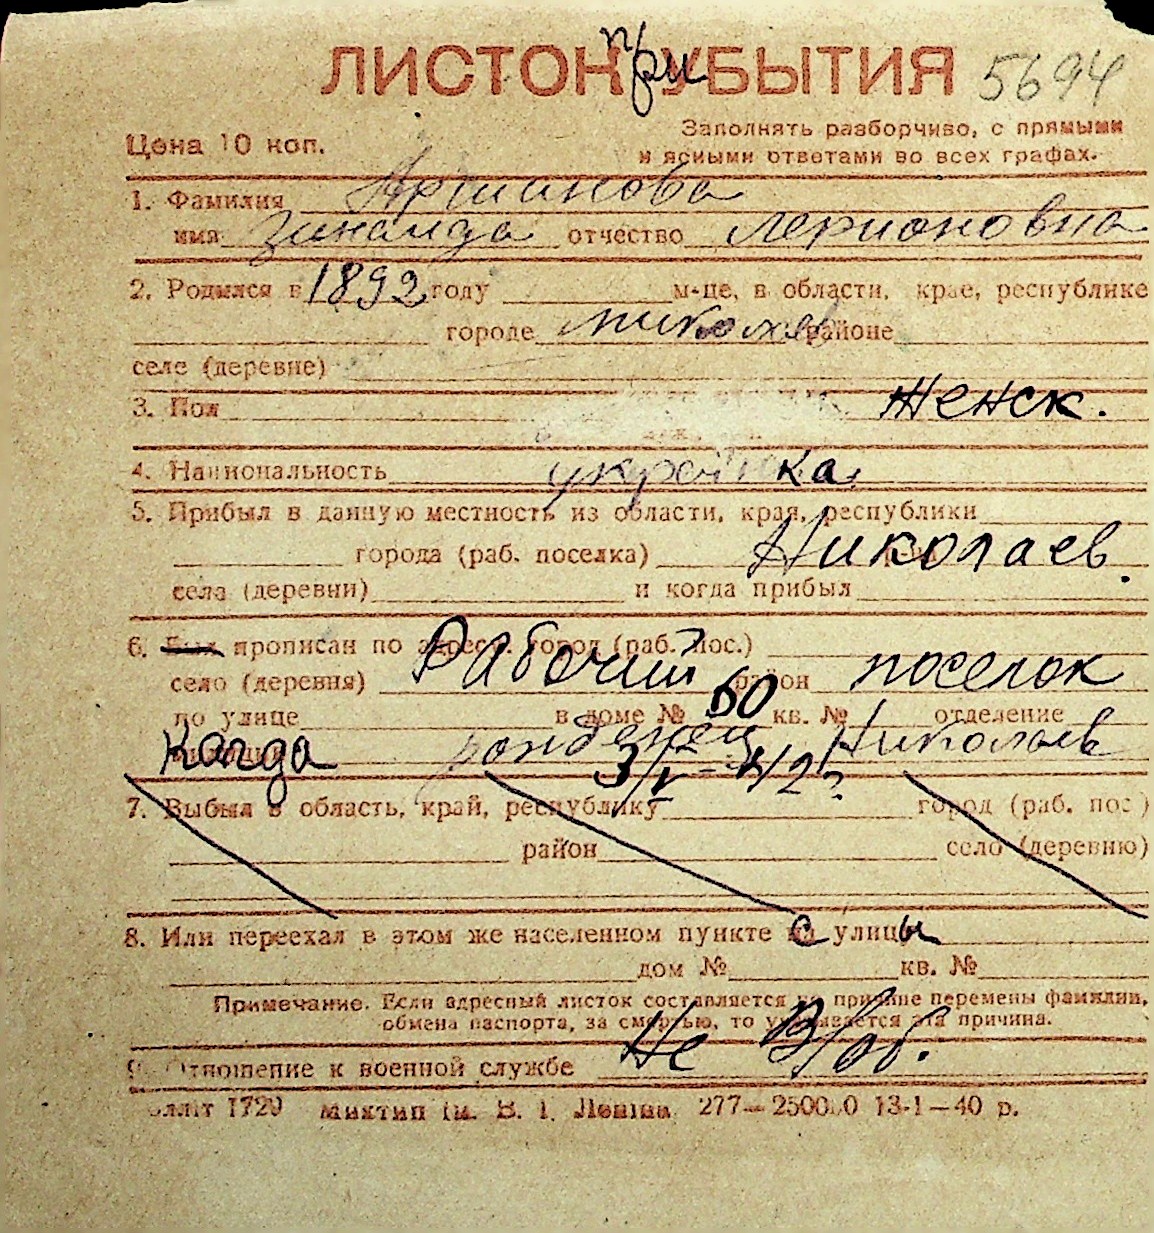 ЛИСТОК при УБЫТИЯ 5694
Цена 10 коп.
Заполнять разборчиво, с прямыми
и ясными ответами во всех графах.
1. Фамилия
имя Зинаида отчество Лерионовна
2. Родился в 1892 году м-це, в области, крае, республике
городе Николаев районе
селе (деревне)
3. Пол Женск.
4. Национальность украинка
5. Прибыл в данную местность из области, края, республики
города (раб. поселка) Николаев.
села (деревни) и когда прибыл
6. Был прописан по адресу: город (раб. пос.)
село (деревня) Рабочий район поселок
по улице в доме № 60 кв. № отделение
Когда Николаев
3/V-42?
7. Выбыл в область, край, республику город (раб. пос.)
район село (деревню)
8. Или переехал в этом же населенном пункте с улицы
дом № кв. №
Примечание. Если адресный листок составляется по причине перемены фамилии,
обмена паспорта, за смертью, то указывается эта причина.
9. Отношение к военной службе Не В/об.
1729 им. В. И. Ленина 277— 13-1—40 р.